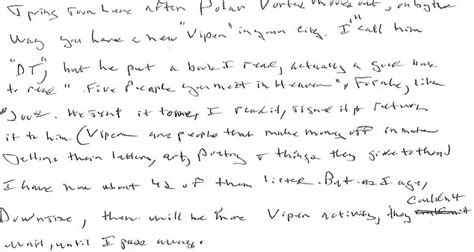 Spring soon here after Polar Vortex moves out, on by the
way you have a new "Viper" in your city. I'll call him
"DT", but he put a book I read, actually a good book
to read "Five People you meet in Heaven", For sale, like
$300. He sent it to me, I read it, sign it & return
it to him. (Vipers are people that make money off inmates
selling their letters, art, poetry & things they give to them)
I have now about 42 of them listed. But as I age,
Downsize, there will be more Viper activity, they couldn't
wait, until I pass away.